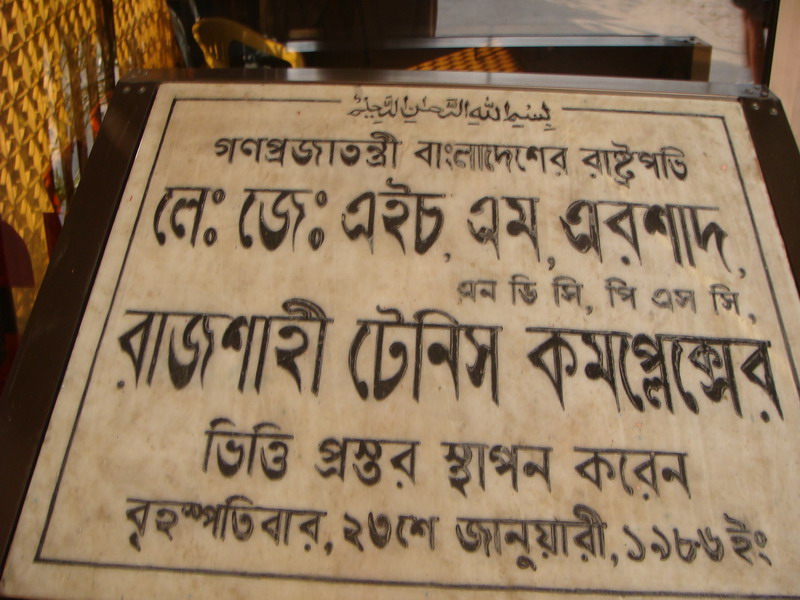 بسم الله الرحمن الرحيم
গণপ্রজাতন্ত্রী বাংলাদেশের রাষ্ট্রপতি
লেঃ জেঃ এইচ, এম, এরশাদ,
এন ডি সি, পি এস সি,
রাজশাহী টেনিস কমপ্লেক্সের
ভিত্তি প্রস্তর স্থাপন করেন
বৃহস্পতিবার, ২৩শে জানুয়ারী, ১৯৮৬ ইং